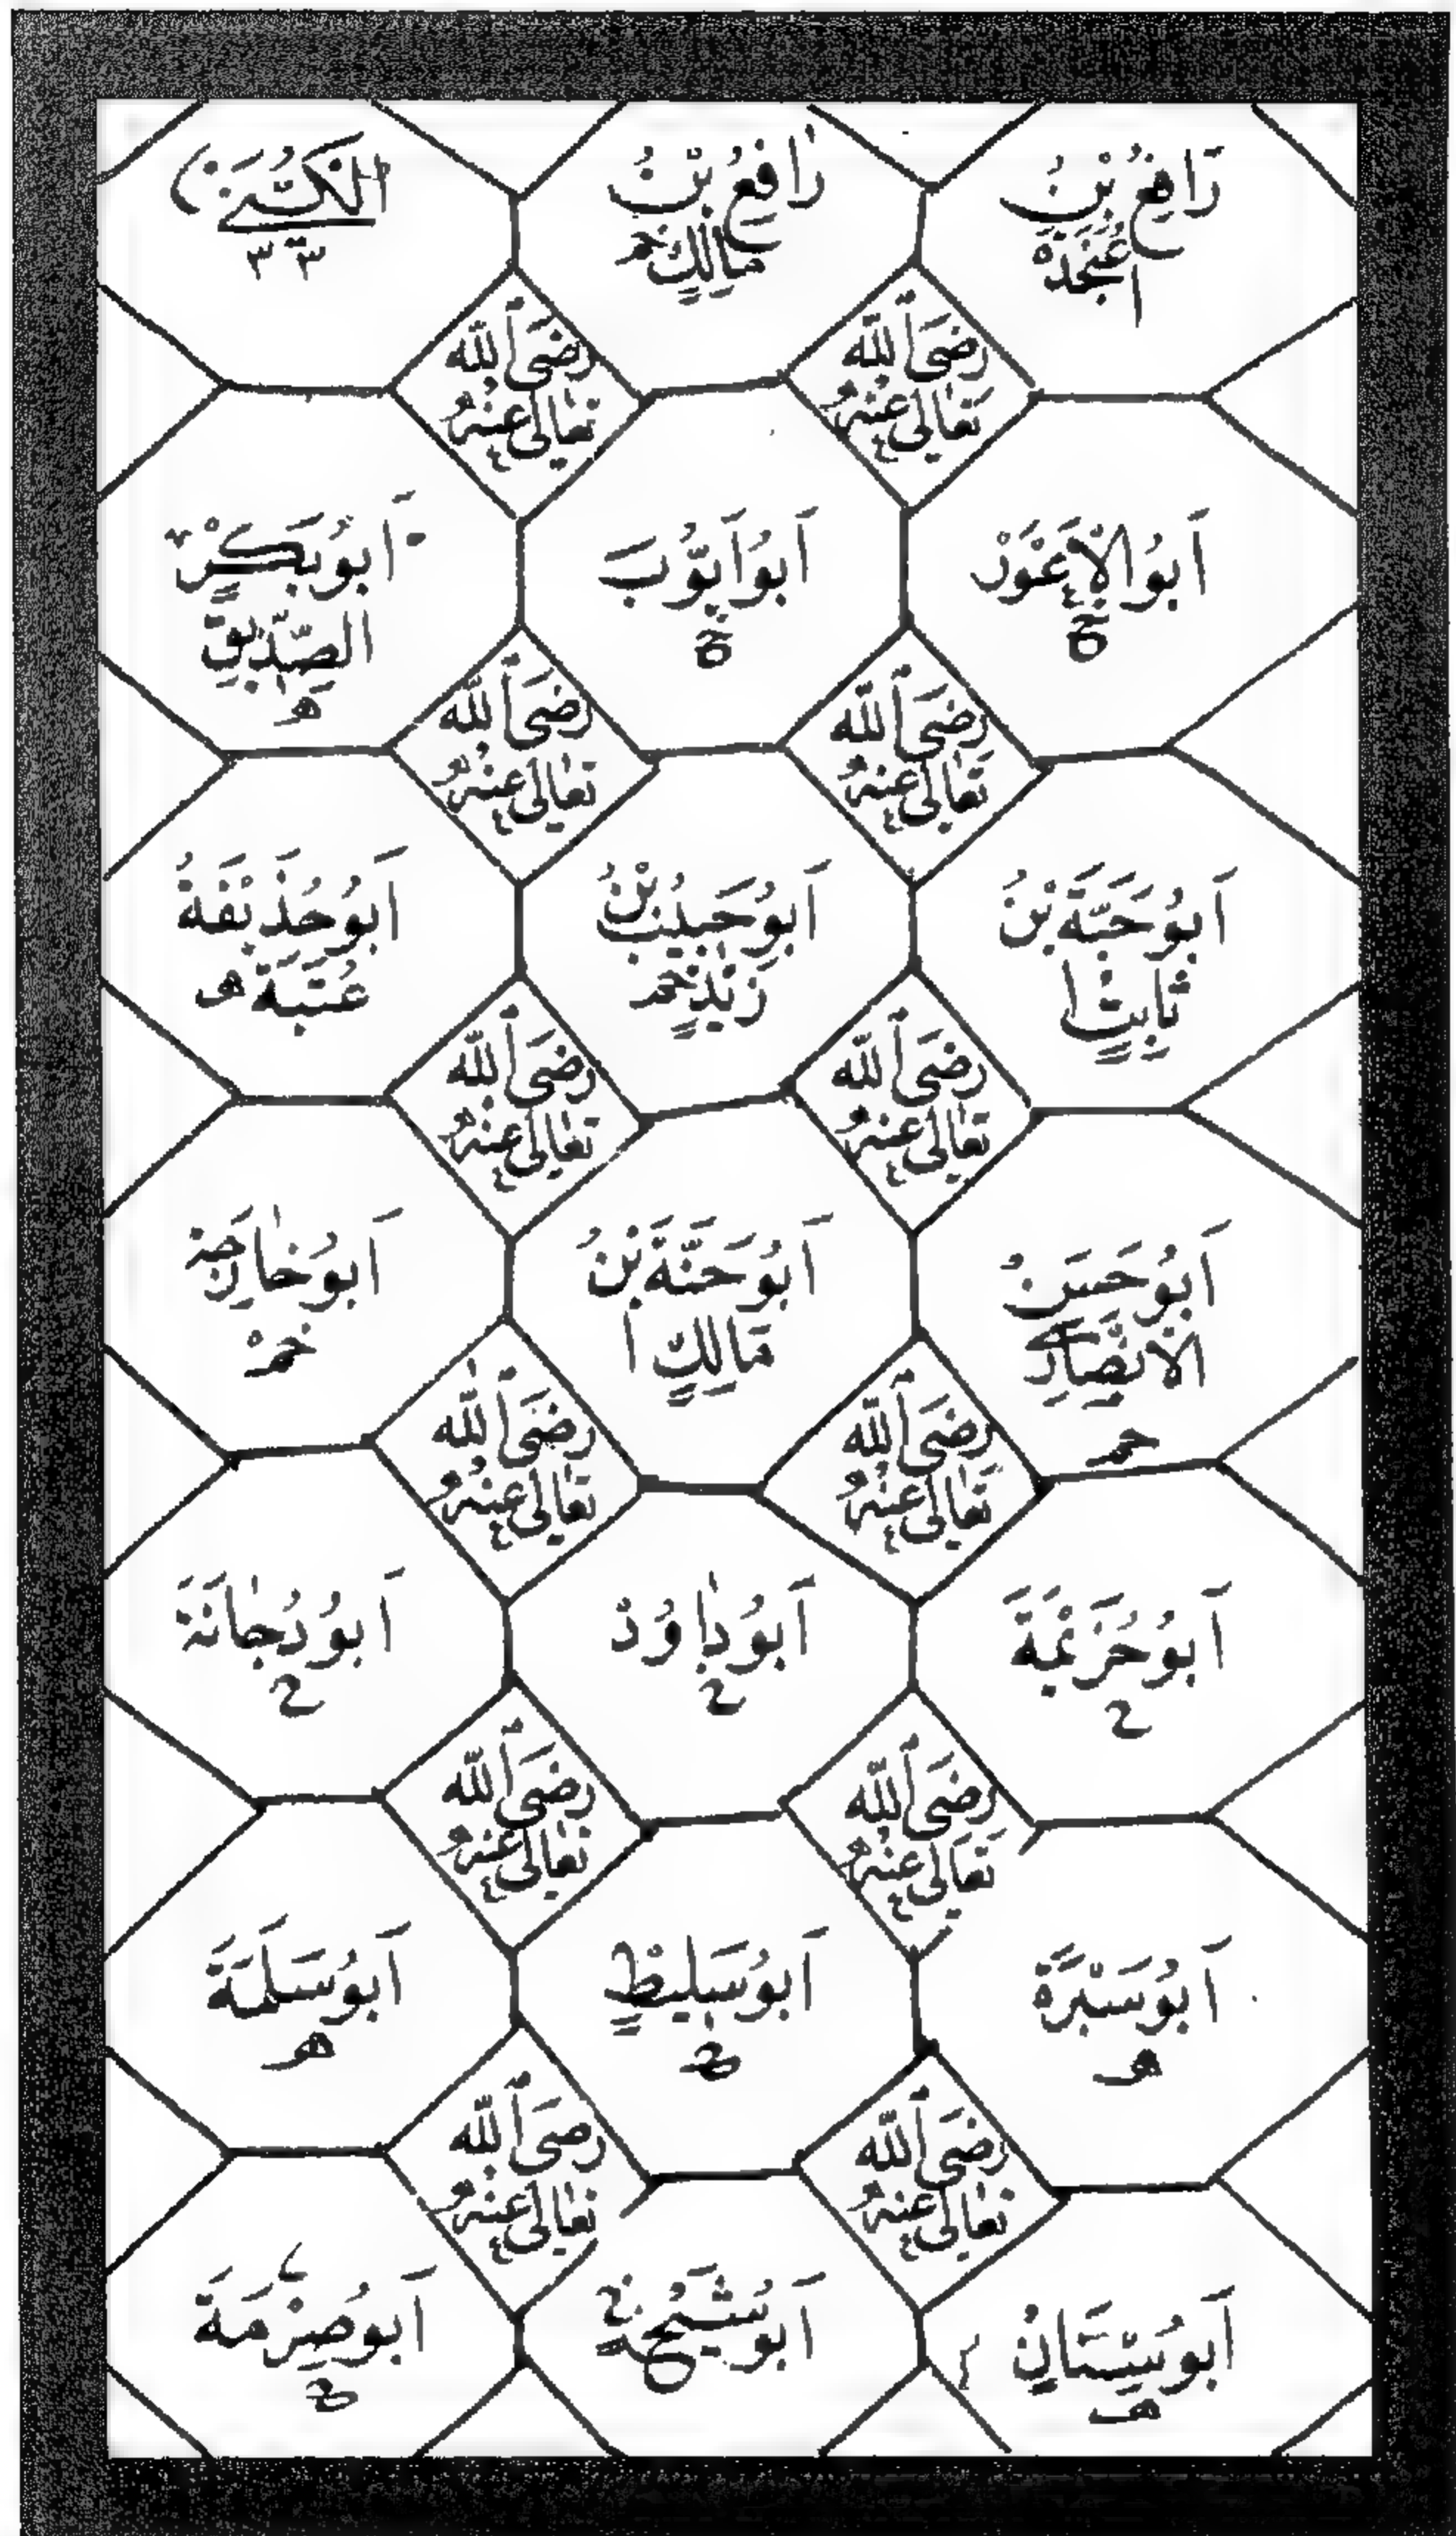 رَافِعُ بْنُ
عُنْجُدَةَ
ا
رَافِعُ بْنُ
مَالِكٍ خـ
الْكُنَى
٣٣
رَضِيَ اللّٰهُ
تَعَالٰى عَنْهُ
رَضِيَ اللّٰهُ
تَعَالٰى عَنْهُ
اَبُو الْاَعْوَرْ
خ
اَبُو اَيُّوْبَ
خ
اَبُوْ بَكْرٍ
الصِّدِّيْقِ
هـ
رَضِيَ اللّٰهُ
تَعَالٰى عَنْهُ
رَضِيَ اللّٰهُ
تَعَالٰى عَنْهُ
اَبُوْ حَبَّةَ بْنُ
ثَابِتٍ ا
اَبُوْ حَبِيْبِ بْنُ
زَيْدٍ خـ
اَبُوْ حُذَيْفَةُ
عُتْبَةَ هـ
رَضِيَ اللّٰهُ
تَعَالٰى عَنْهُ
رَضِيَ اللّٰهُ
تَعَالٰى عَنْهُ
اَبُوْ حَسَنُ
الْاَنْصَارِىْ
اَبُوْ حَنَّةَ بْنُ
مَالِكٍ ا
اَبُوْ خَارِجَةْ
رَضِيَ اللّٰهُ
تَعَالٰى عَنْهُ
رَضِيَ اللّٰهُ
تَعَالٰى عَنْهُ
اَبُوْ خُزَيْمَةَ
اَبُوْ دَاوُدْ
اَبُوْ دُجَانَةَ
رَضِيَ اللّٰهُ
تَعَالٰى عَنْهُ
رَضِيَ اللّٰهُ
تَعَالٰى عَنْهُ
اَبُوْ سَبْرَةَ
هـ
اَبُوْ سَلِيْطٍ
اَبُوْ سَلَمَةَ
هـ
رَضِيَ اللّٰهُ
تَعَالٰى عَنْهُ
رَضِيَ اللّٰهُ
تَعَالٰى عَنْهُ
اَبُوْ سِنَانٍ
هـ
اَبُوْ شَيْخٍ
اَبُوْ صِرْمَةَ